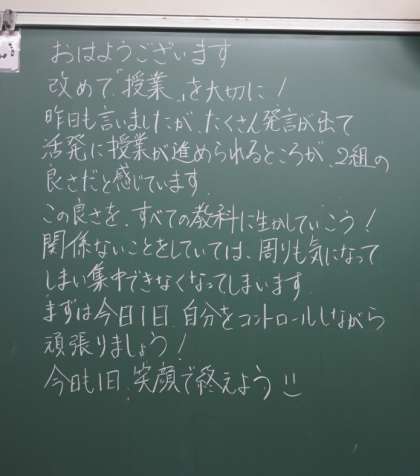 おはようございます
改めて「授業」を大切に!
昨日も言いましたが、たくさん発言が出て
活発に授業が進められるところが、2組の
良さだと感じています。
この良さを、すべての教科に生かしていこう!
関係ないことをしていては、周りも気になって
しまい集中できなくなってしまいます。
まずは今日1日、自分をコントロールしながら
頑張りましょう!
今日も1日、笑顔で終えよう